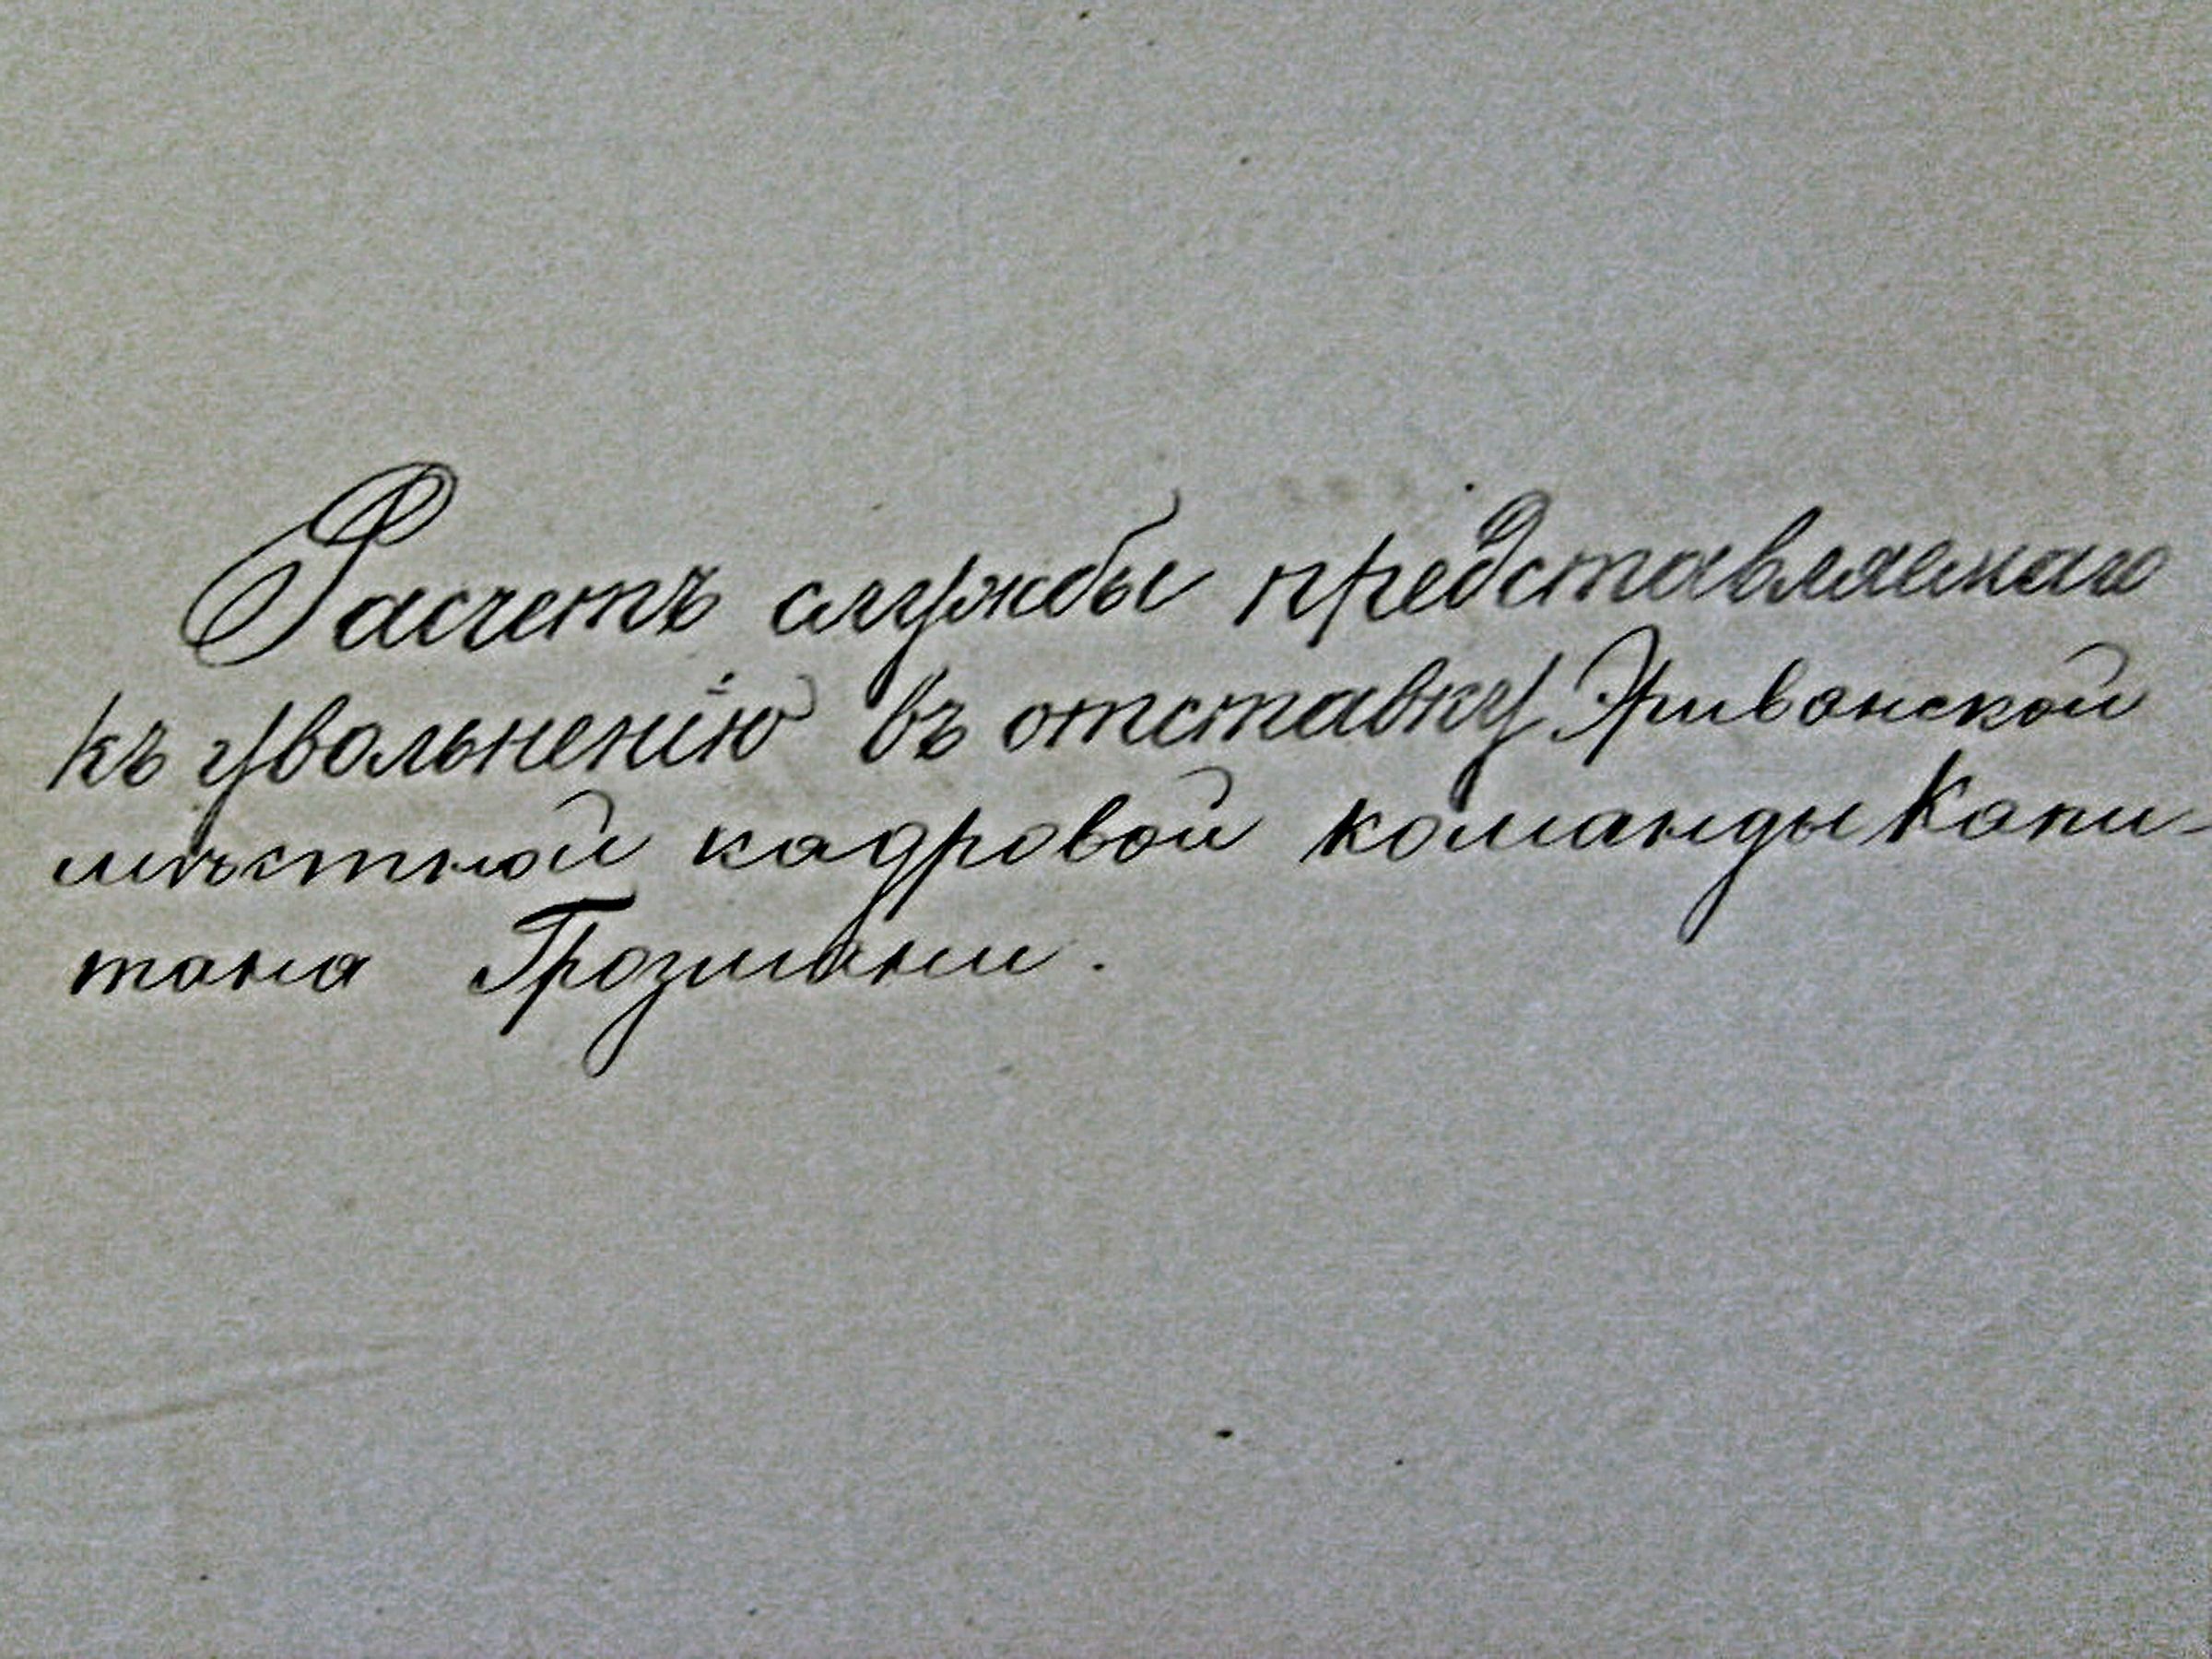 Расчетъ службы представляемаго
къ увольненію въ отставку Эриванской
мѣстной кадровой команды Капи-
тана Грозмани.